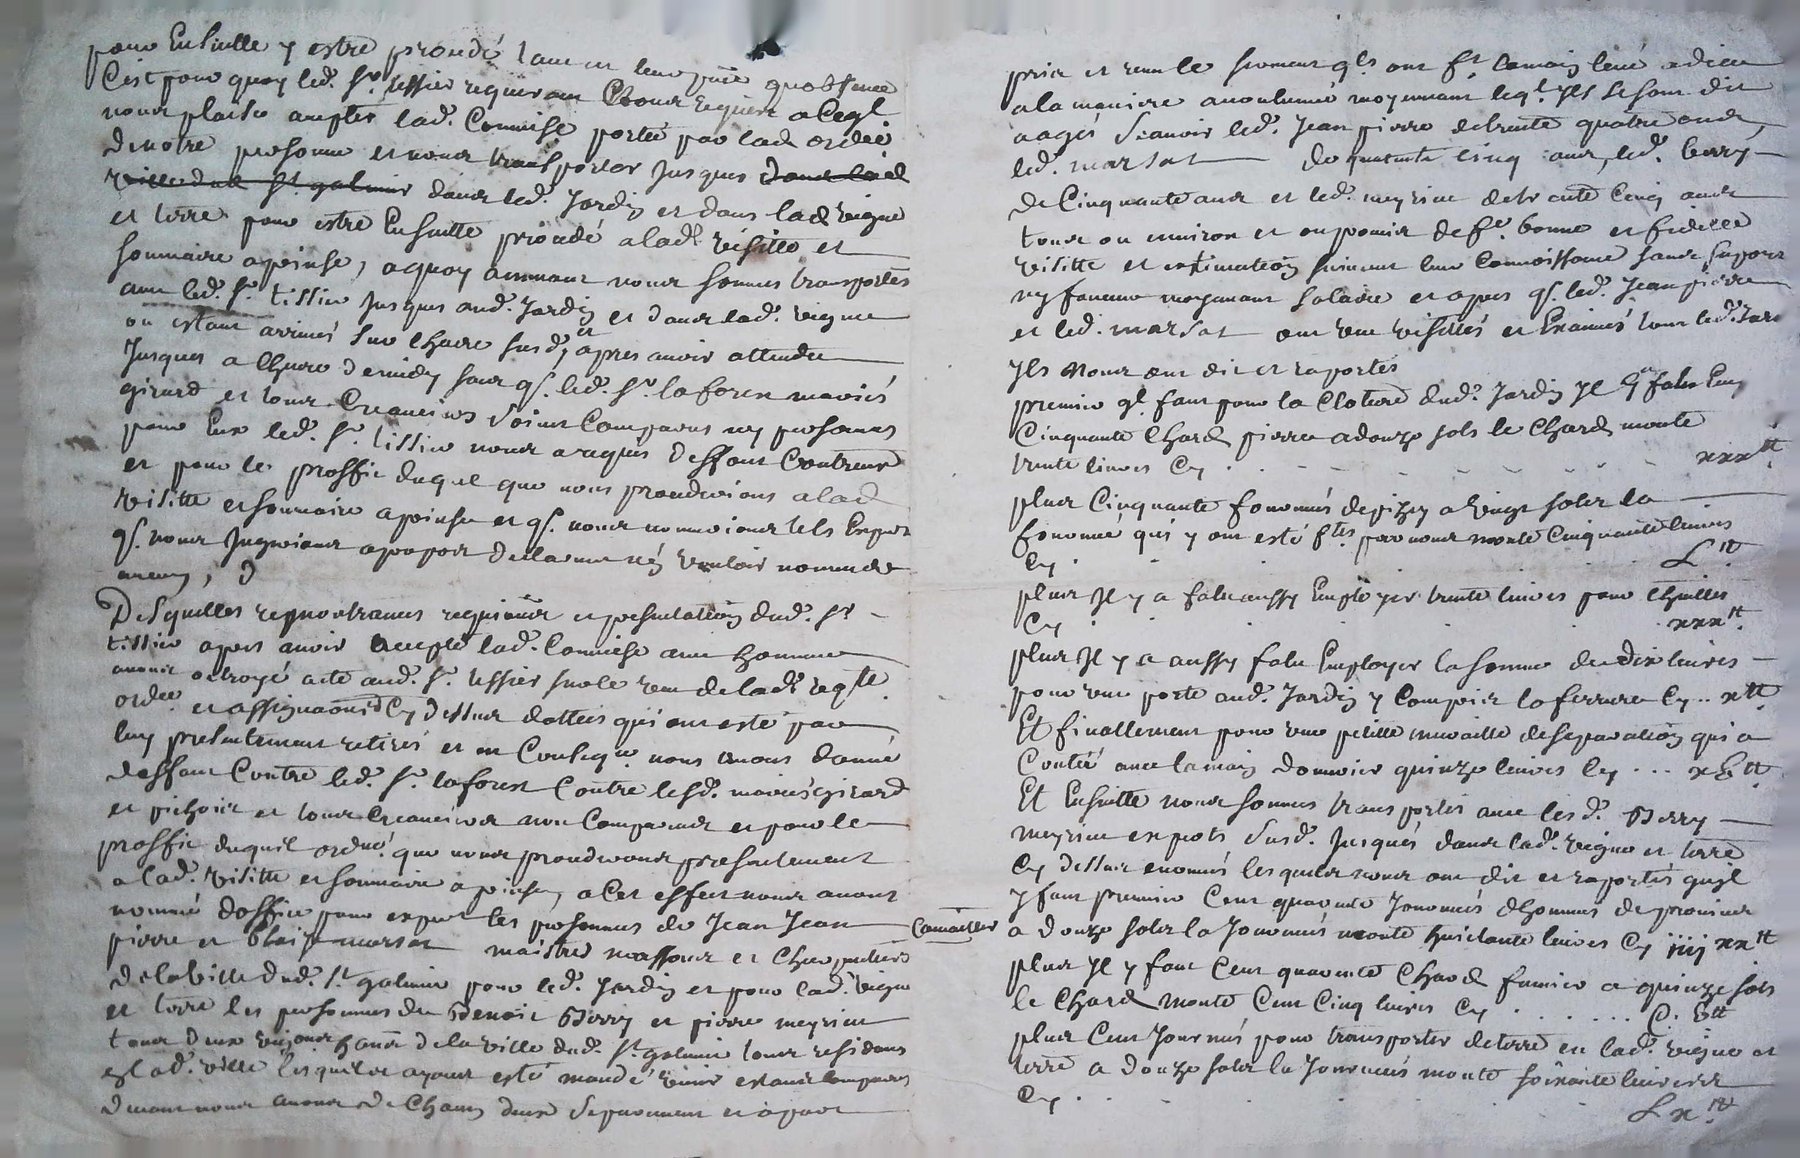 pour Ensuitte y estre proceddé tant en leur presence qu'absence
C'est pour quoy led. Sr. tissier requerant Et nous requiert a ce ql.
nous plaise accepter lad. Commise portée par lad ordce.
de notre personne et nous transporter Jusques dans lad
ville dud St. galmier dans led. Jardin et dans lad vigne
et terre pour estre Ensuitte proceddé a lad. visitte et
sommaire aprinse, a quoy amenant nous sommes transportés
avec led. Sr. tissier Jusques aud. Jardin et dans lad. vigne
ou estant arrivés sur l'heure susd, et apres avoir attendu
Jusques a lheure de midy sans q. led. Sr. laforest mariés
girard et tous Creanciers soient Comparus ny personnes
pour Eux led. Sr. tissier nous a requis deffaut Contreux
et pour le proffit duquel que nous procedderions a lad
visitte et sommaire aprinse et q. nous nommerions tels Expers
q. nous Jugerions a propos declarant n'en vouloir nommer
aucun, D
Desquelles remontrances requisition et presentation dud. Sr
tissier apres avoir accepté lad. Commise avec honneur
avons octroyé acte aud. Sr. tissier sur le veu de lad. reqte.
ordce. et assignaons Cy dessus dattées qui ont esté par
luy presentement retirés et en Conseqce. nous avons donné
deffaut Contre led. Sr. laforest Contre lesd. mariés girard
et pichoir et tous Creanciers non Comparants et pour le
proffit duquel ordné. que nous procedderons presentement
a lad. visitte et sommaire aprinse, a Cet effet nous avons
nommé doffice pour expert les personnes de Jean Jean Camaillier
pierre et Blaise marsat maistres massons et Charpentiers
de la ville dud. St. galmier pour led. Jardin et pour lad. vigne
et terre les personnes de Benoit Berry et pierre meyrieu
tous deux vignerons hans de la ville dud. St. galmier tous residans
en lad. ville lesquels ayant esté mandé venir et estants comparus
devant nous avons de Chacun deux separement et a part
pris et receu le serment qls ont ft. la main levé a dieu
a la maniere accoutumée moyennant leql. Ils se sont dit
aagés sçavoir led. Jean pierre de trente quatre ans
led. marsat de quarente cinq ans, led. berry
de Cinquante ans et led. meyrieu de trente Cinq ans
tous ou environ et ont promis de fe. bonne et fidelle
visitte et estimation suivant leur Connoissance sans suport
ny faveur moyennant salaire et apres q. led. Jean pierre
et led. marsat ont veu visittés et Examiné tout led. Jard
Ils Nous ont dit et raportés
premier ql. faut pour la Cloture dud. Jardin Jl a falu Employ
Cinquante Chard pierre a douze sols le Chard monte
trente livres Cy . . . xxx tt
plus Cinquante Journés de pizey a vingt sols la
Journée qui y ont esté fts. par nous monte Cinquante livres
Cy . . . L tt
plus Jl y a falu aussy Employer trente livres pour thuilles
Cy . . . xxx tt
plus Jl y a aussy falu Employer la somme de dix livres
pour une porte aud. Jardin y Compris la ferrure Cy .. x tt
Et finallement pour une petitte muraille de separation qui a
Coutté avec la main d'oeuvre quinze livres Cy ... xv tt
Et Ensuitte nous sommes transportés avec lesd. Berry
meyrieu experts susd. Jusqués dans lad. vigne et terre
Cy dessus enoncés lesquels nous ont dit et raportés qu'jl
y faut premier Cent quarente Journés dhommes de provins
a douze sols la Journée monte huictante livres Cy iiij xx tt
plus Jl y faut Cent quarente Chard fumier a quinze sols
le Chard monte Cent Cinq livres Cy ....... C. V tt
plus Cent Journés pour transporter de terre en lad. vigne et
terre a douze sols la Journée monte soixante livres
Cy . . . Lx tt